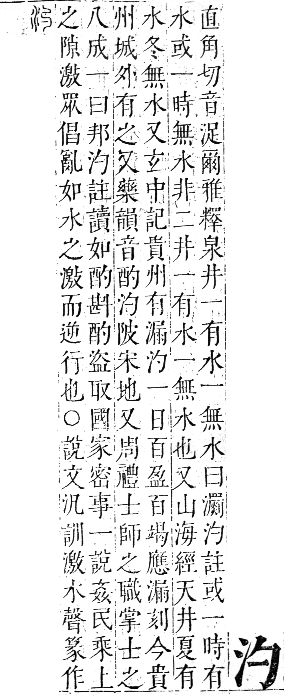 汋
直角切音浞爾雅釋泉井一有水一無水曰瀱汋註或一時有
水或一時無水非二井一有水一無水也又山海經天井夏有
水冬無水又玄中記貴州有漏汋一日百盈百竭應漏刻今貴
州城外有之又藥韻音酌汋陂宋地又周禮士師之職掌士之
八成一曰邦汋註讀如酌斟酌盜取國家密事一說姦民乘上
之隙激眾倡亂如水之激而逆行也○說文汎訓激水聲篆作
汋